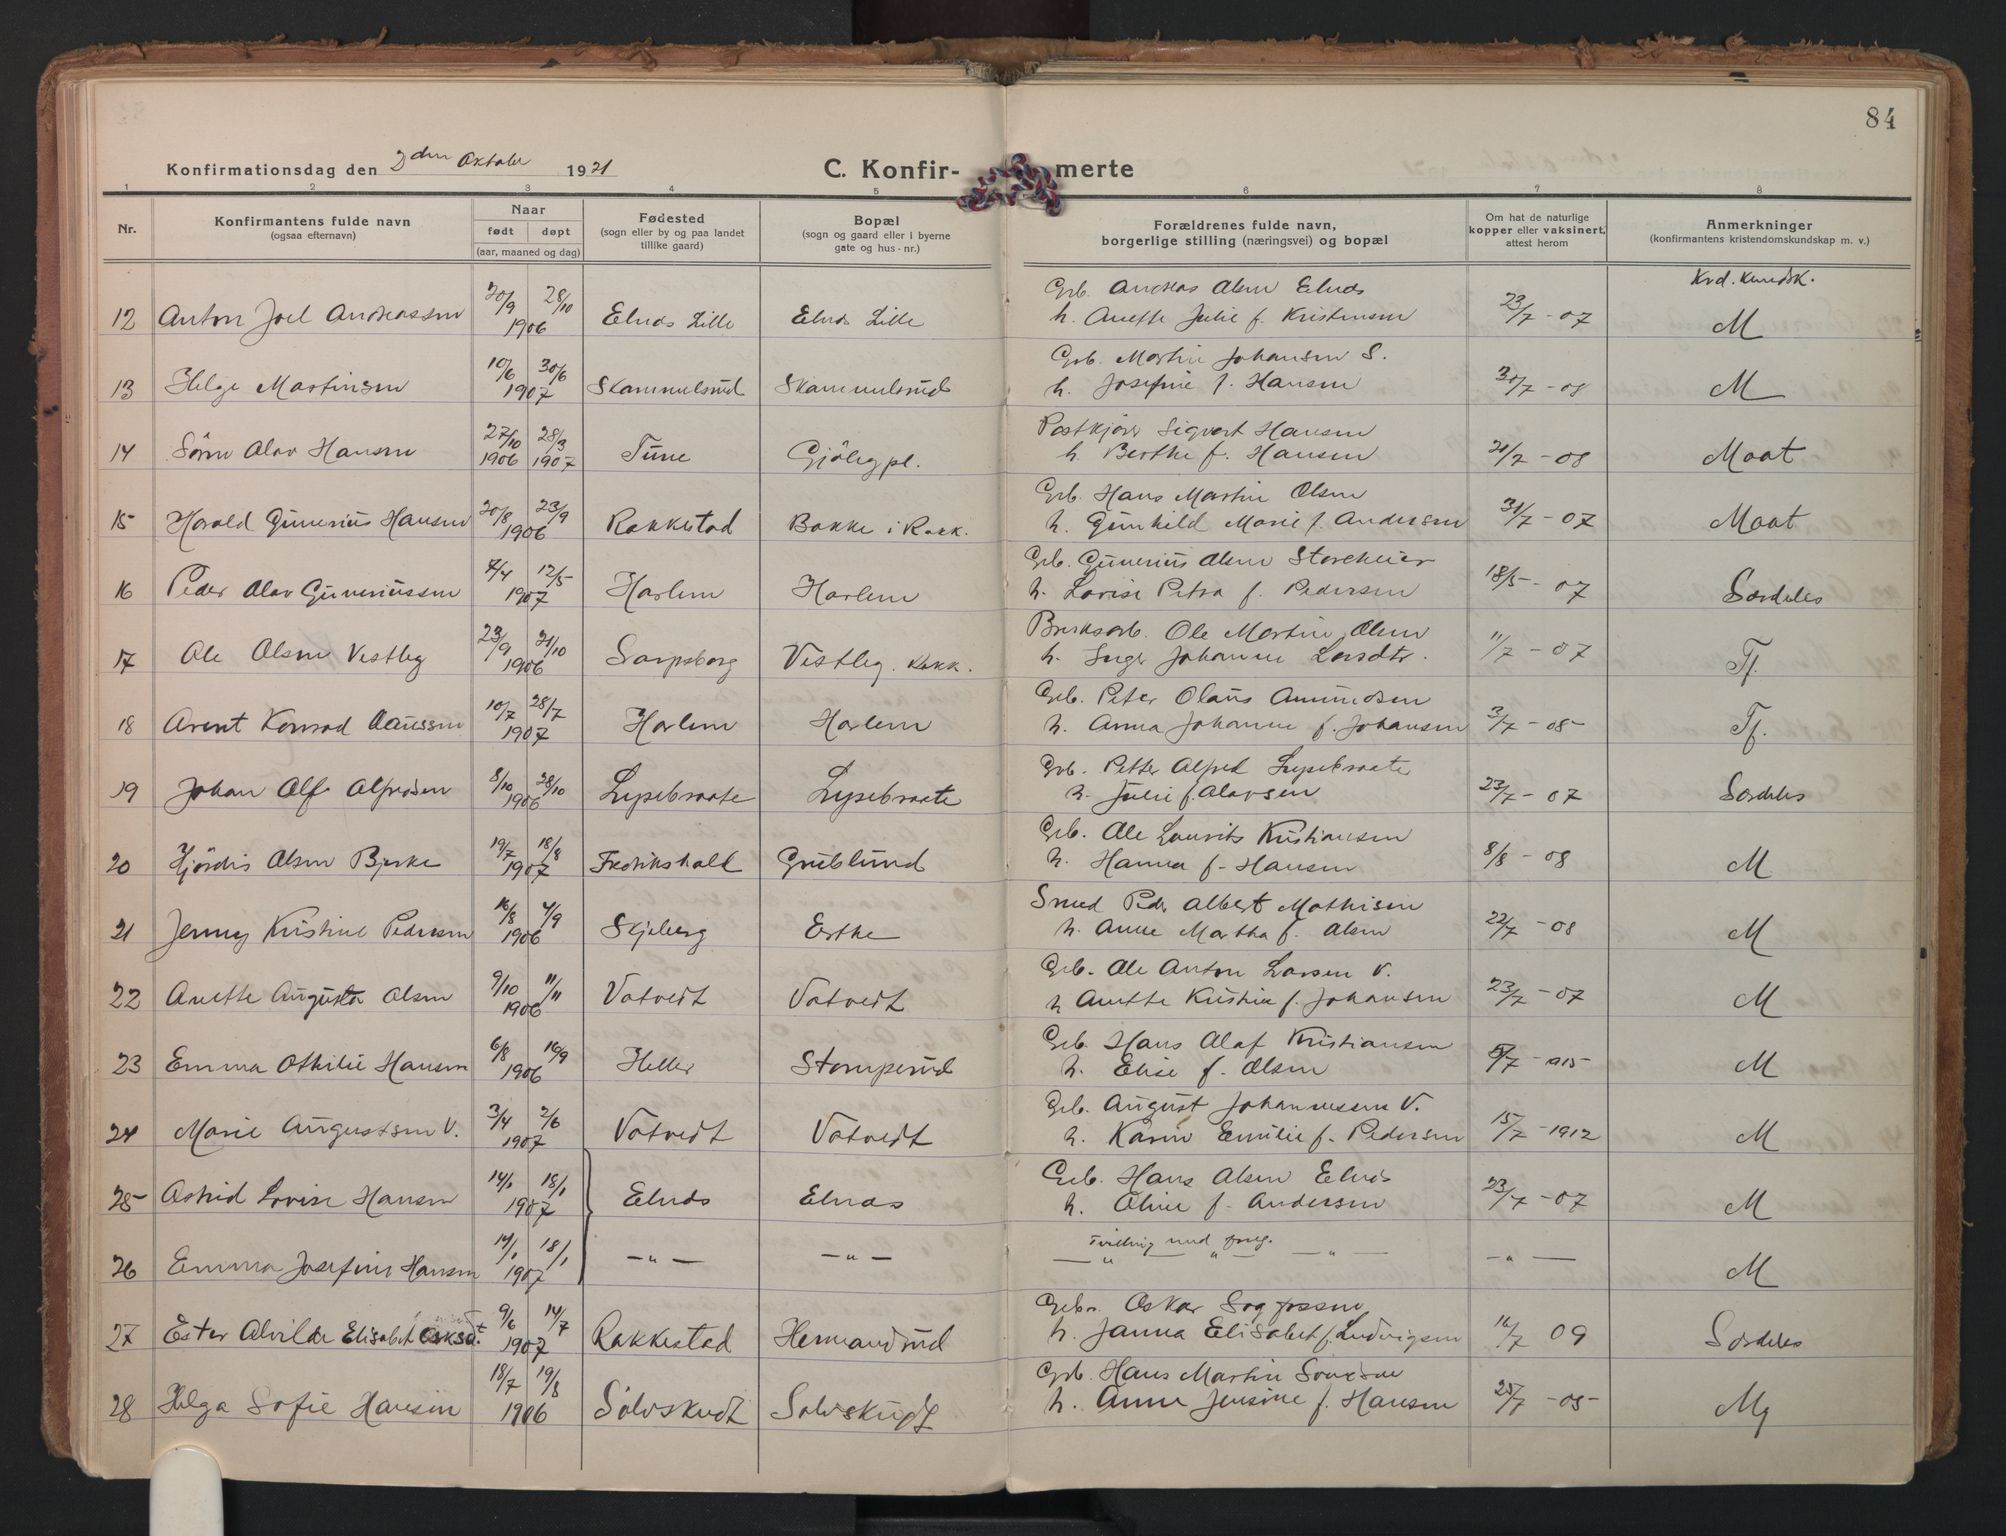 84
Konfirmationsdag den 2den Oktober 1921
C. Konfir-merte
1 2 3 4 5 6 7 8
Nr. Konfirmantens fulde navn (ogsaa efternavn) Naar født døpt (aar, maaned og dag) Fødested (sogn eller by og paa landet tillike gaard) Bopæl (sogn og gaard eller i byerne gate og hus-nr.) Forældrenes fulde navn, borgerlige stilling (næringsvei) og bopæl Om hat de naturlige kopper eller vaksinert, attest herom Anmerkninger (konfirmantens kristendomskundskap m. v.)
Krd. kundsk.
Grb. Andreas Olsen Elnds
12 Anton Joel Andreassen 20/9 28/10 1906 Elnds Lille Elnds Lille h. Anette Julie f. Kristensen 23/7 - 07 M
Grb. Martin Johansen S.
13 Helge Martinsen 10/6 30/6 1907 Skammelsrud Skammelsrud h. Josefine f. Hansen 30/7 - 08 M
Postkjører Sigvart Hansen
14 Sörn Olav Hansen 27/10 1906 28/3 1907 Tune Gjölegpl. h. Berthe f. Hansen 21/7 - 08 Maat
Grb. Hans Martin Olsen
15 Harald Gunerius Hansen 20/8 23/9 1906 Rakkestad Bakke i Rakk. h. Gunhild Marie f. Andersen 31/7 - 07 Maat
Grb. Gunerius Olsen Storeheier
16 Peder Olav Guneriussen 7/4 12/5 1907 Harlem Harlem h. Lovise Petra f. Pedersen 18/5 - 07 Særdeles
Bruksarb. Ole Martin Olsen
17 Ole Olsen Vestleg 23/9 21/10 1906 Sarpsborg Vestleg. Rakk. h. Inger Johanne Larsdtr. 11/7 - 07 Tf.
Grb. Peter Olaus Amundsen
18 Arent Konrad Olaussen 10/7 28/7 1907 Harlem Harlem h. Anna Johanne f. Johansen 3/7 - 08 Tf.
Grb. Petter Alfred Lysebraate
19 Johan Alf Alfredsen 8/10 28/10 1906 Lysebraate Lysebraate h. Julie f. Olavsen 23/7 - 07 Særdeles
Grb. Ole Laurits Kristiansen
20 Hjördis Olsen Bjerke 19/7 18/8 1907 Fredrikshald Grublund h. Hanna f. Hansen 8/8 - 08 M
Smed Peder Albert Mathisen
21 Jenny Kristine Pedersen 16/8 4/9 1906 Skjeberg Erthe h. Anne Martha f. Olsen 22/7 - 08 M
Grb. Ole Anton Larsen V.
22 Anette Augusta Olsen 9/10 11/11 1906 Vatvedt Vatvedt h Anette Kristine f. Johansen 23/7 - 07 M
Grb. Hans Olaf Kristiansen
23 Emma Othilie Hansen 6/8 16/9 1906 Heller Stomperud h. Elise f. Olsen 5/7 - 1915 M
Grb. August Johannessen V.
24 Marie Augustsen V. 3/4 2/6 1907 Vatvedt Vatvedt h. Karin Emilie f. Pedersen 15/7 - 1912 M
Grb. Hans Olsen Elnds
25 Astrid Lovise Hansen 14/1 18/1 1907 Elnds Elnds h. Oline f. Andersen 23/7 - 07 M
Tvilling med foreg.
26 Emma Josefine Hansen 14/1 18/1 1907 — " — — " — — " — " — " — — " — M
Grbr. Oskar Sagfossen
27 Ester Alvilde Elisabet 9/6 14/7 1907 Rakkestad Hermandrud h. Janna Elisabet f. Ludvigsen 16/7 09 Særdeles
Grb. Hans Martin
28 Helga Sofie Hansen 18/7 19/8 1906 Sølvskudt Solvskudt h. Anne Jensine f. Hansen 25/7 - 05 Mg